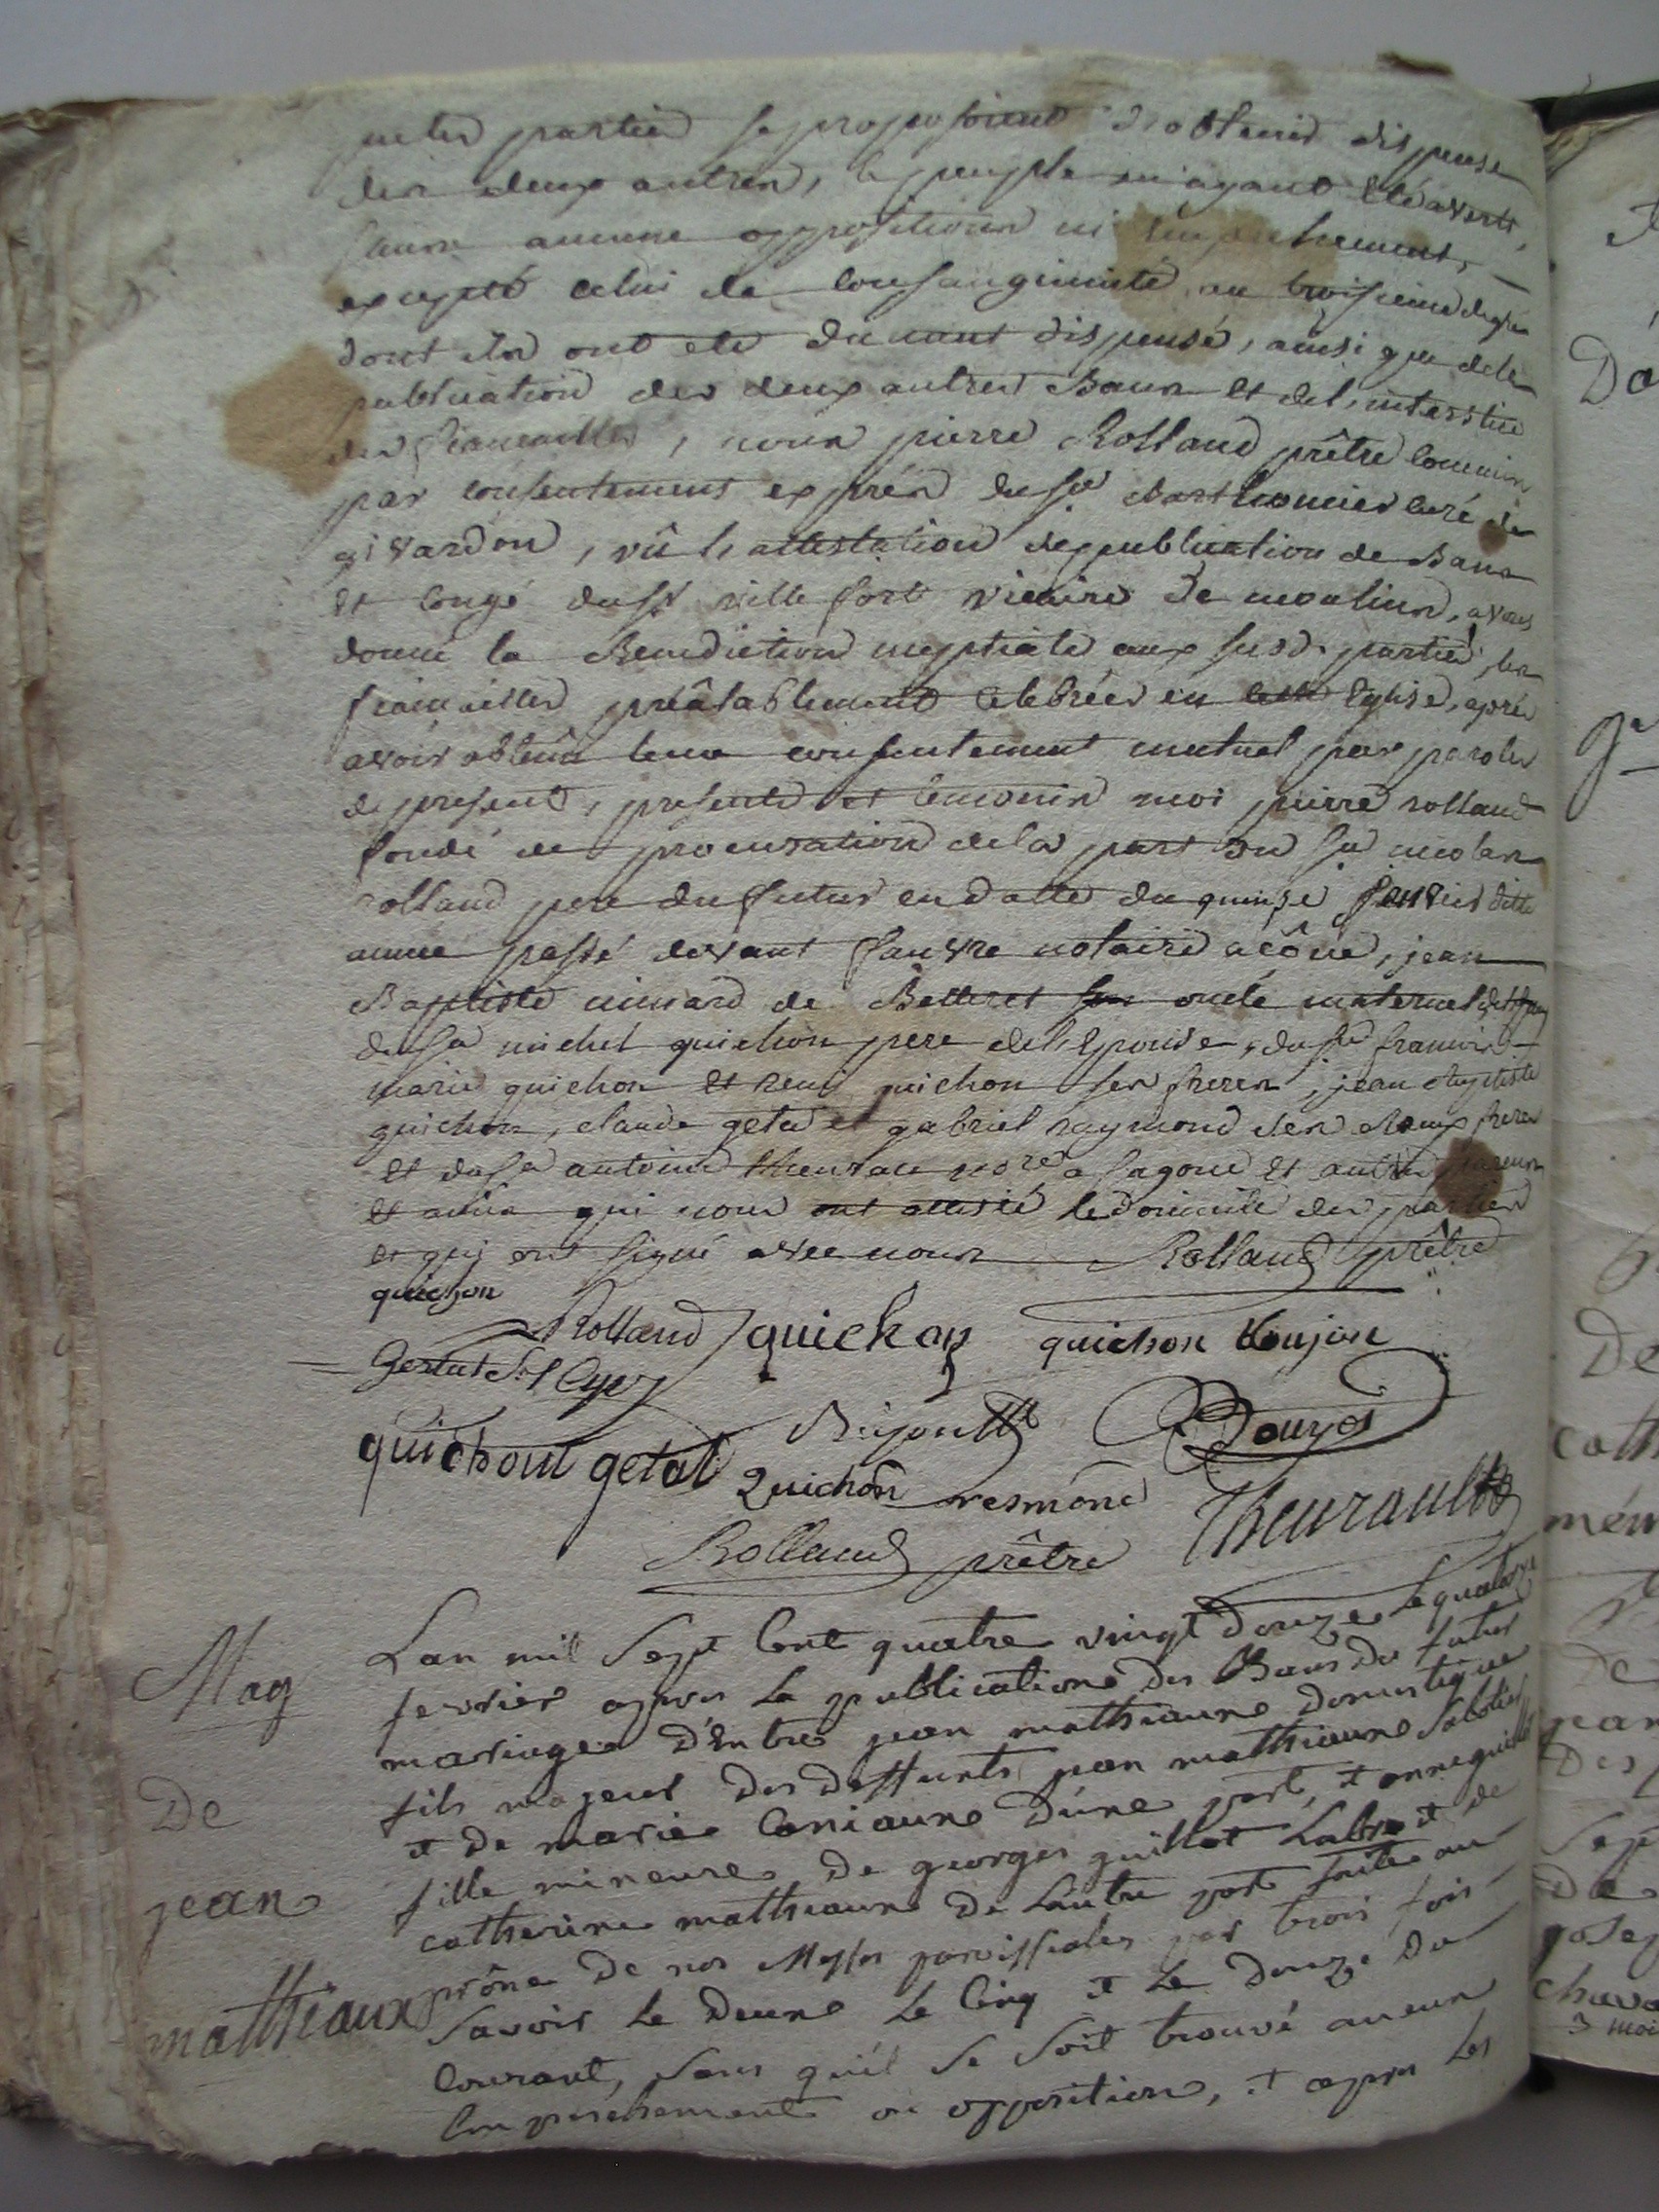 parties se proposoient d'obtenir dispense
des deux autres, le peuple en ayant été averti,
sans aucune opposition ni empechement,
excepté celui de consanguinité au troisieme degré
dont ils ont ete duement dispensé, ainsi que de la
publication des deux autres Bans et de l'interstice
des fiancailles, nous pierre Rolland prêtre commis
par consentement exprès du sr Barthomier curé de
givardon, vû l'attestation de publication de Bans
et congé du sr ville fort vicaire de moulins, avons
donné la Benediction nuptiale aux susd. parties, les
fiancailles préâlablement celebrées en cette Eglise, après
avoir obtenû leur consentement mutuel par paroles
de present, presents et temoins moi pierre rolland
fondé de procuration de la part du sr nicolas
rolland pere du futur en datte du quinze janvier ditte
année passé devant fauvre notaire à cône, jean
Baptiste mimard de Betteret son oncle maternel
du sr michel quichon pere de l'Epouse, du sr francois
marie quichon et remi quichon ses freres, jean Baptiste
quichon, claude getat et gabriel raymond ses Beaux freres
et du sr antoine theurau nore a sagone et autres parens
et amis qui nous ont attesté le domicile des parties
et qui ont signé avec nous Rolland prêtre
quichon
Rolland quichon quichon Goujon
Gestat St Cyr
Bijoutt Bouzos
quichon getat Quichon resmond Theurault
Rolland prêtre
Mag
De
jean
mathiaux
Lan mil Sept Cent quatre vingt Douze Le quatorze
fevrier apres La publications des Bans du futur
mariage d'Entre jean mathiaune Domestique
fils majeur des deffunts jean mathiaune Sabotier
et De marie Coniaune D'une part, et anne guillot
fille mineure De georges guillot Labr et de
catherine mathiaune De Lautre part faite au
prône De nos Messes paroissiales par trois fois
Savoir Le Deune Le Cinq et Le Douze Du
Courant, sans qu'il se soit trouvé aucun
Empechement ou opposition, et apres Les